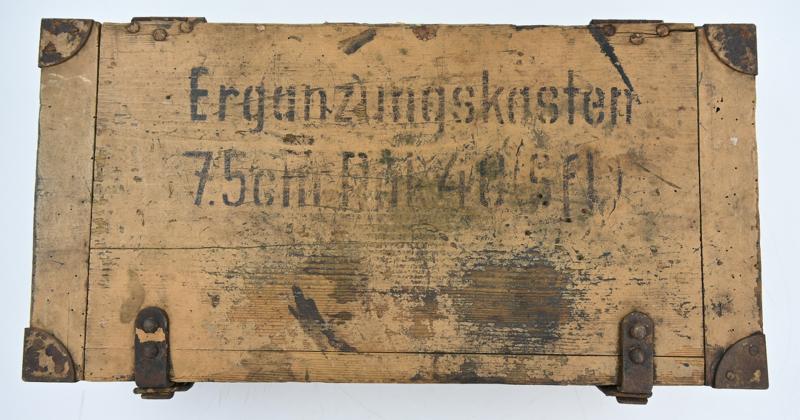 Ergänzungskasten
7.5cm PAK 40 (Sfl)